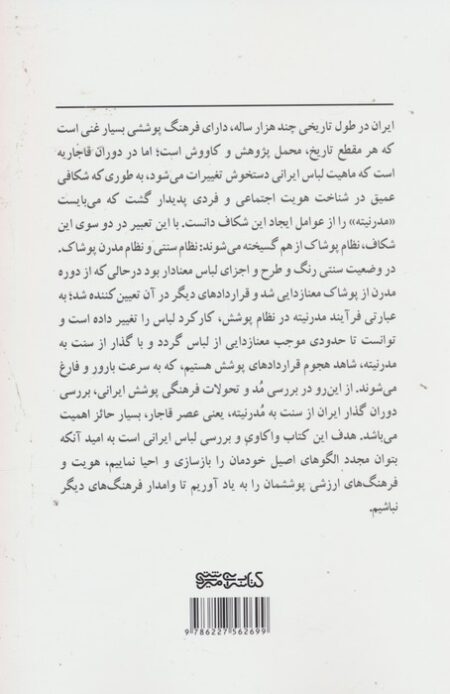 ایران در طول تاریخی چند هزار ساله، دارای فرهنگ پوششی بسیار غنی است
که هر مقطع تاریخ، محمل پژوهش و کاووش است؛ اما در دوران قاجاریه
است که ماهیت لباس ایرانی دستخوش تغییرات می‌شود، به طوری که شکافی
عمیق در شناخت هویت اجتماعی و فردی پدیدار گشت که می‌بایست
«مدرنیته» را از عوامل ایجاد این شکاف دانست. با این تعبیر در دو سوی این
شکاف، نظام پوشاک از هم گسیخته می‌شوند: نظام سنتی و نظام مدرن پوشاک.
در وضعیت سنتی رنگ و طرح و اجزای لباس معنادار بود درحالی که از دوره
مدرن از پوشاک معنازدایی شد و قراردادهای دیگر در آن تعیین کننده شد؛ به
عبارتی فرآیند مدرنیته در نظام پوشش، کارکرد لباس را تغییر داده است و
توانست تا حدودی موجب معنازدایی از لباس گردد و با گذار از سنت به
مدرنیته، شاهد هجوم قراردادهای پوشش هستیم، که به سرعت بارور و فارغ
می‌شوند. از این‌رو در بررسی مُد و تحولات فرهنگی پوشش ایرانی، بررسی
دوران گذار ایران از سنت به مُدرنیته، یعنی عصر قاجار، بسیار حائز اهمیت
می‌باشد. هدف این کتاب واکاوی و بررسی لباس ایرانی است به امید آنکه
بتوان مجدد الگوهای اصیل خودمان را بازسازی و احیا نماییم، هویت و
فرهنگ‌های ارزشی پوششمان را به یاد آوریم تا وامدار فرهنگ‌های دیگر
نباشیم.
کتابسرای میردشتی
9 786227 562699